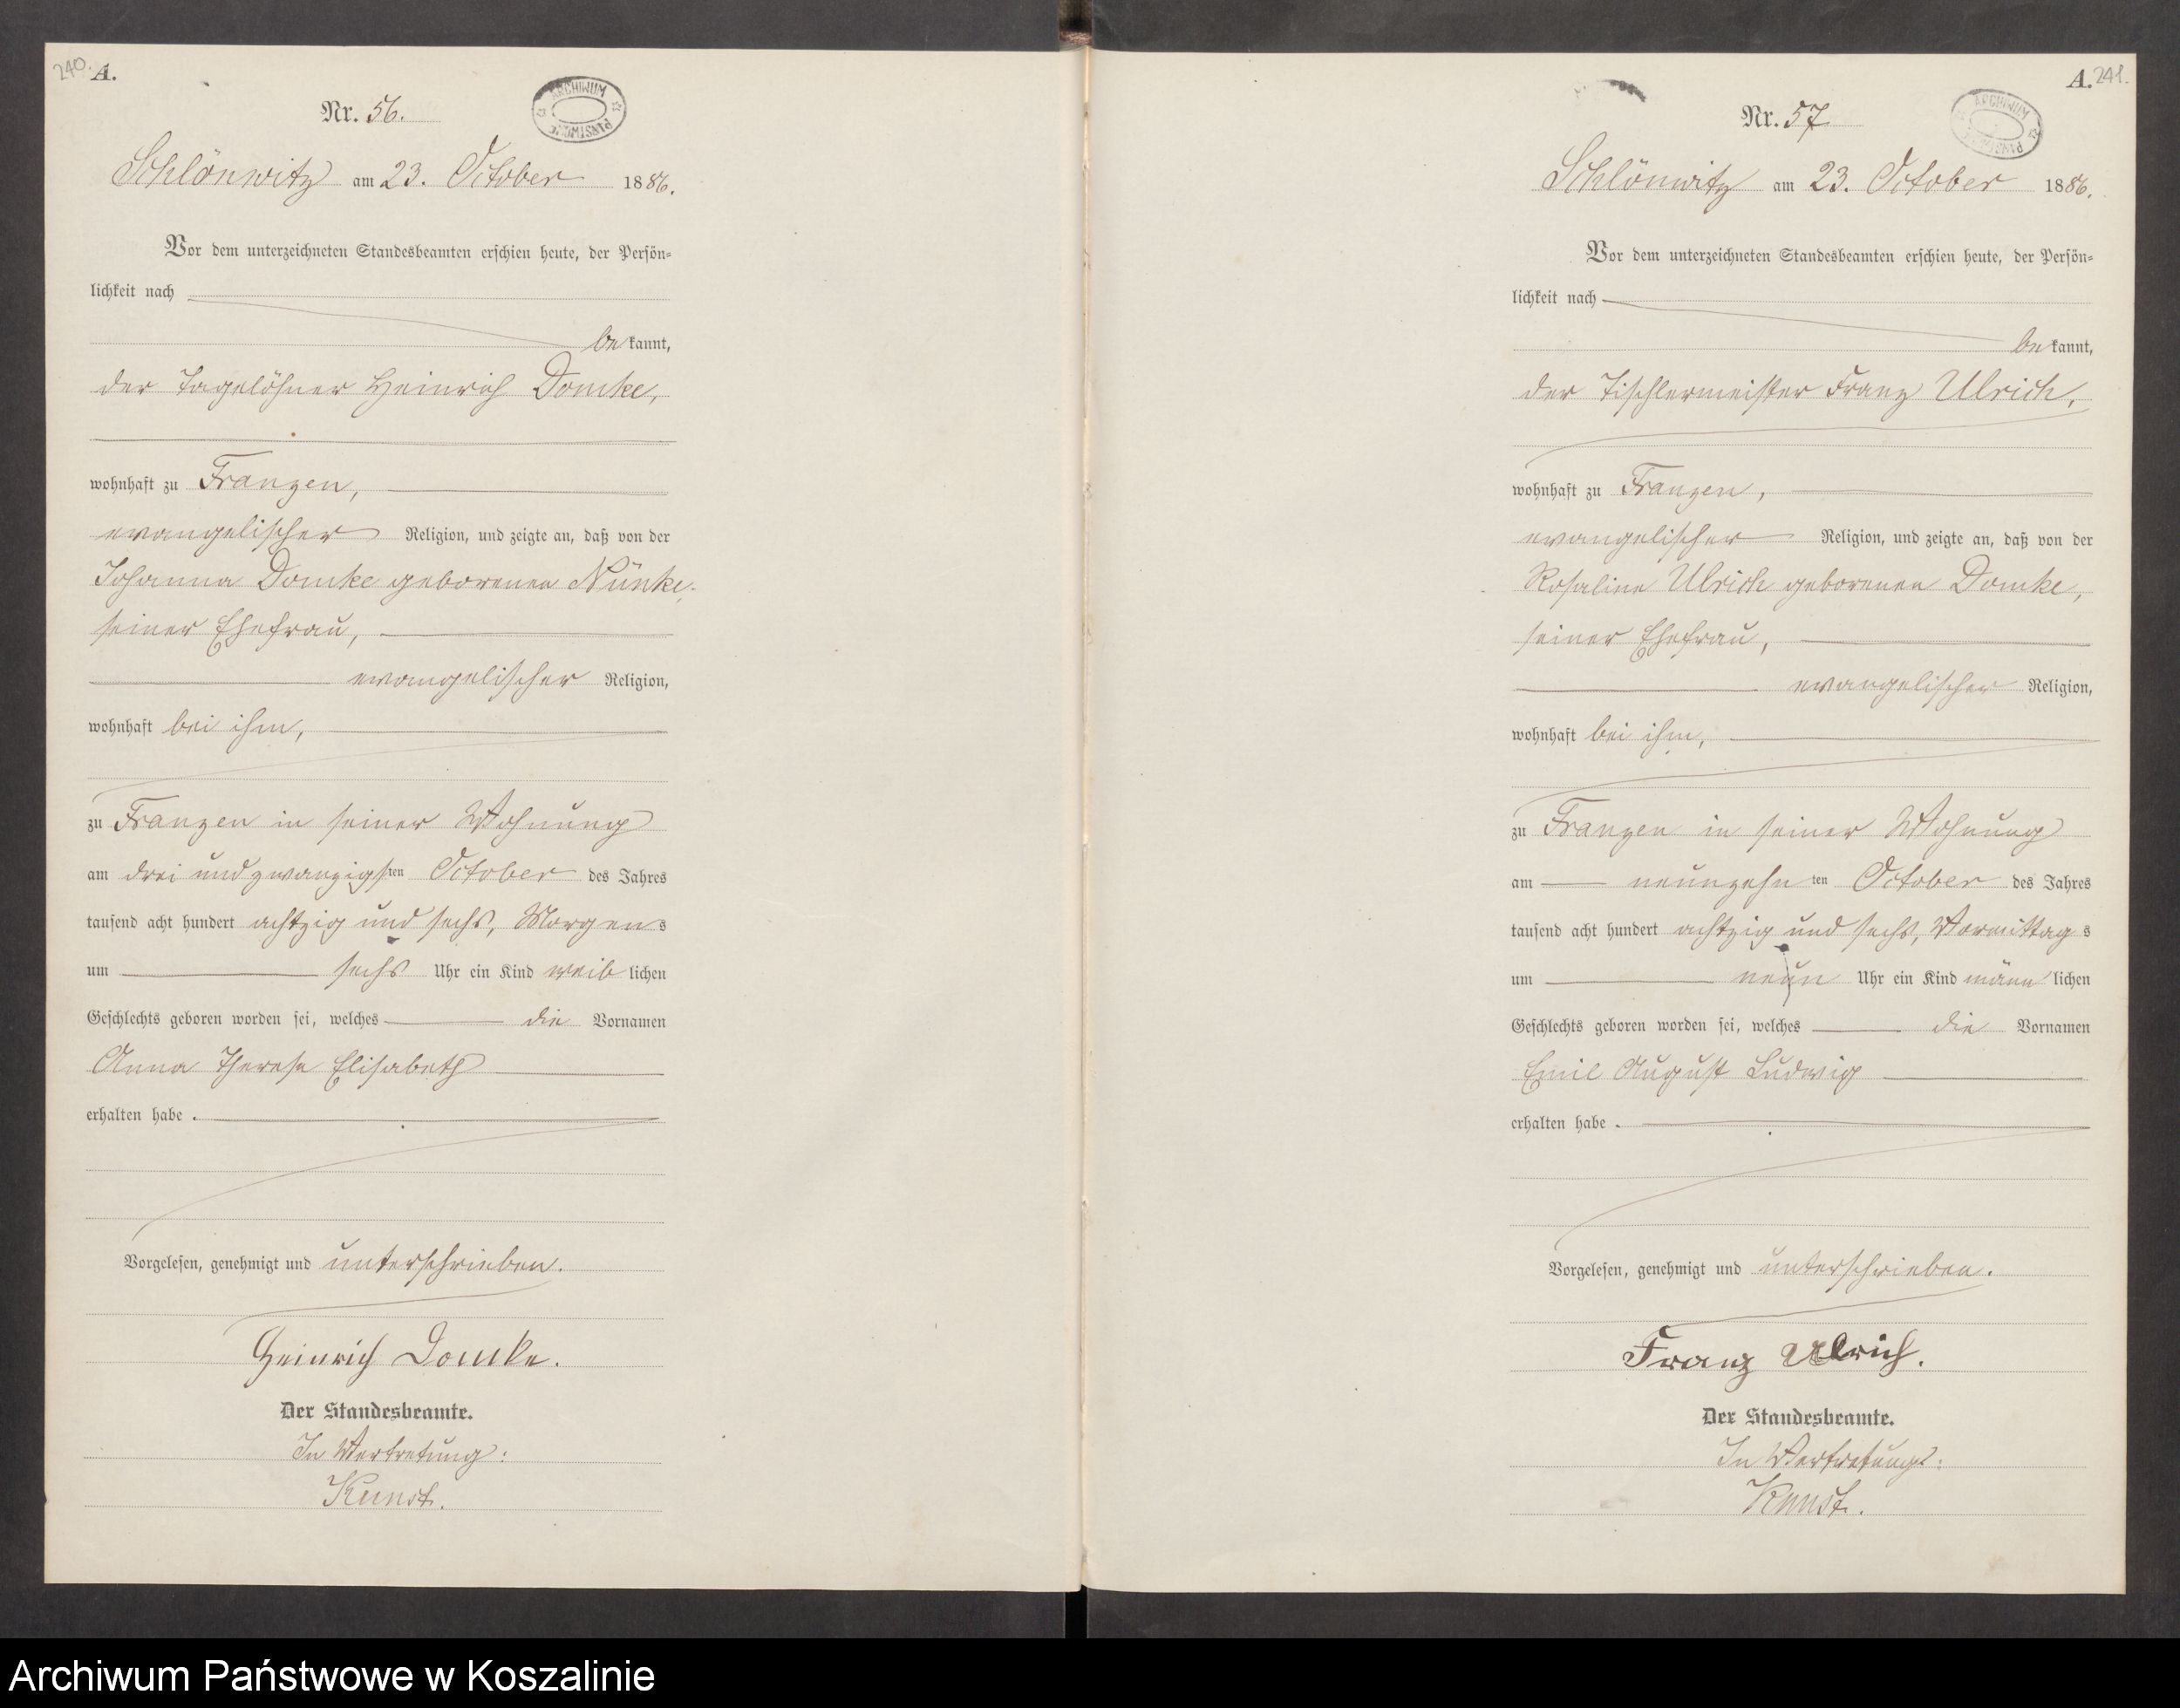 240. A.
ARCHIWUM PAŃSTWOWE
Nr. 56.
Schlönwitz am 23. October 1886.
Vor dem unterzeichneten Standesbeamten erschien heute, der Persön-
lichkeit nach
bekannt,
der Tagelöhner Heinrich Domke,
wohnhaft zu Franzen,
evangelischer Religion, und zeigte an, daß von der
Johanna Domke geborenen Nünke,
seiner Ehefrau,
evangelischer Religion,
wohnhaft bei ihm,
zu Franzen in seiner Wohnung
am drei und zwanzigsten October des Jahres
tausend acht hundert achtzig und sechs, Morgens
um sechs Uhr ein Kind weiblichen
Geschlechts geboren worden sei, welches die Vornamen
Anna Therese Elisabeth
erhalten habe.
Vorgelesen, genehmigt und unterschrieben.
Heinrich Domke.
Der Standesbeamte.
In Vertretung:
Kunst.
A. 241.
ARCHIWUM PAŃSTWOWE
Nr. 57
Schlönwitz am 23. October 1886.
Vor dem unterzeichneten Standesbeamten erschien heute, der Persön-
lichkeit nach
bekannt,
der Tischlermeister Franz Ulrich,
wohnhaft zu Franzen,
evangelischer Religion, und zeigte an, daß von der
Rosaline Ulrich geborenen Domke,
seiner Ehefrau,
evangelischer Religion,
wohnhaft bei ihm,
zu Franzen in seiner Wohnung
am neunzehnten October des Jahres
tausend acht hundert achtzig und sechs, Vormittags
um neun Uhr ein Kind männlichen
Geschlechts geboren worden sei, welches die Vornamen
Emil August Ludwig
erhalten habe.
Vorgelesen, genehmigt und unterschrieben.
Franz Ulrich.
Der Standesbeamte.
In Vertretung:
Kunst.
Archiwum Państwowe w Koszalinie